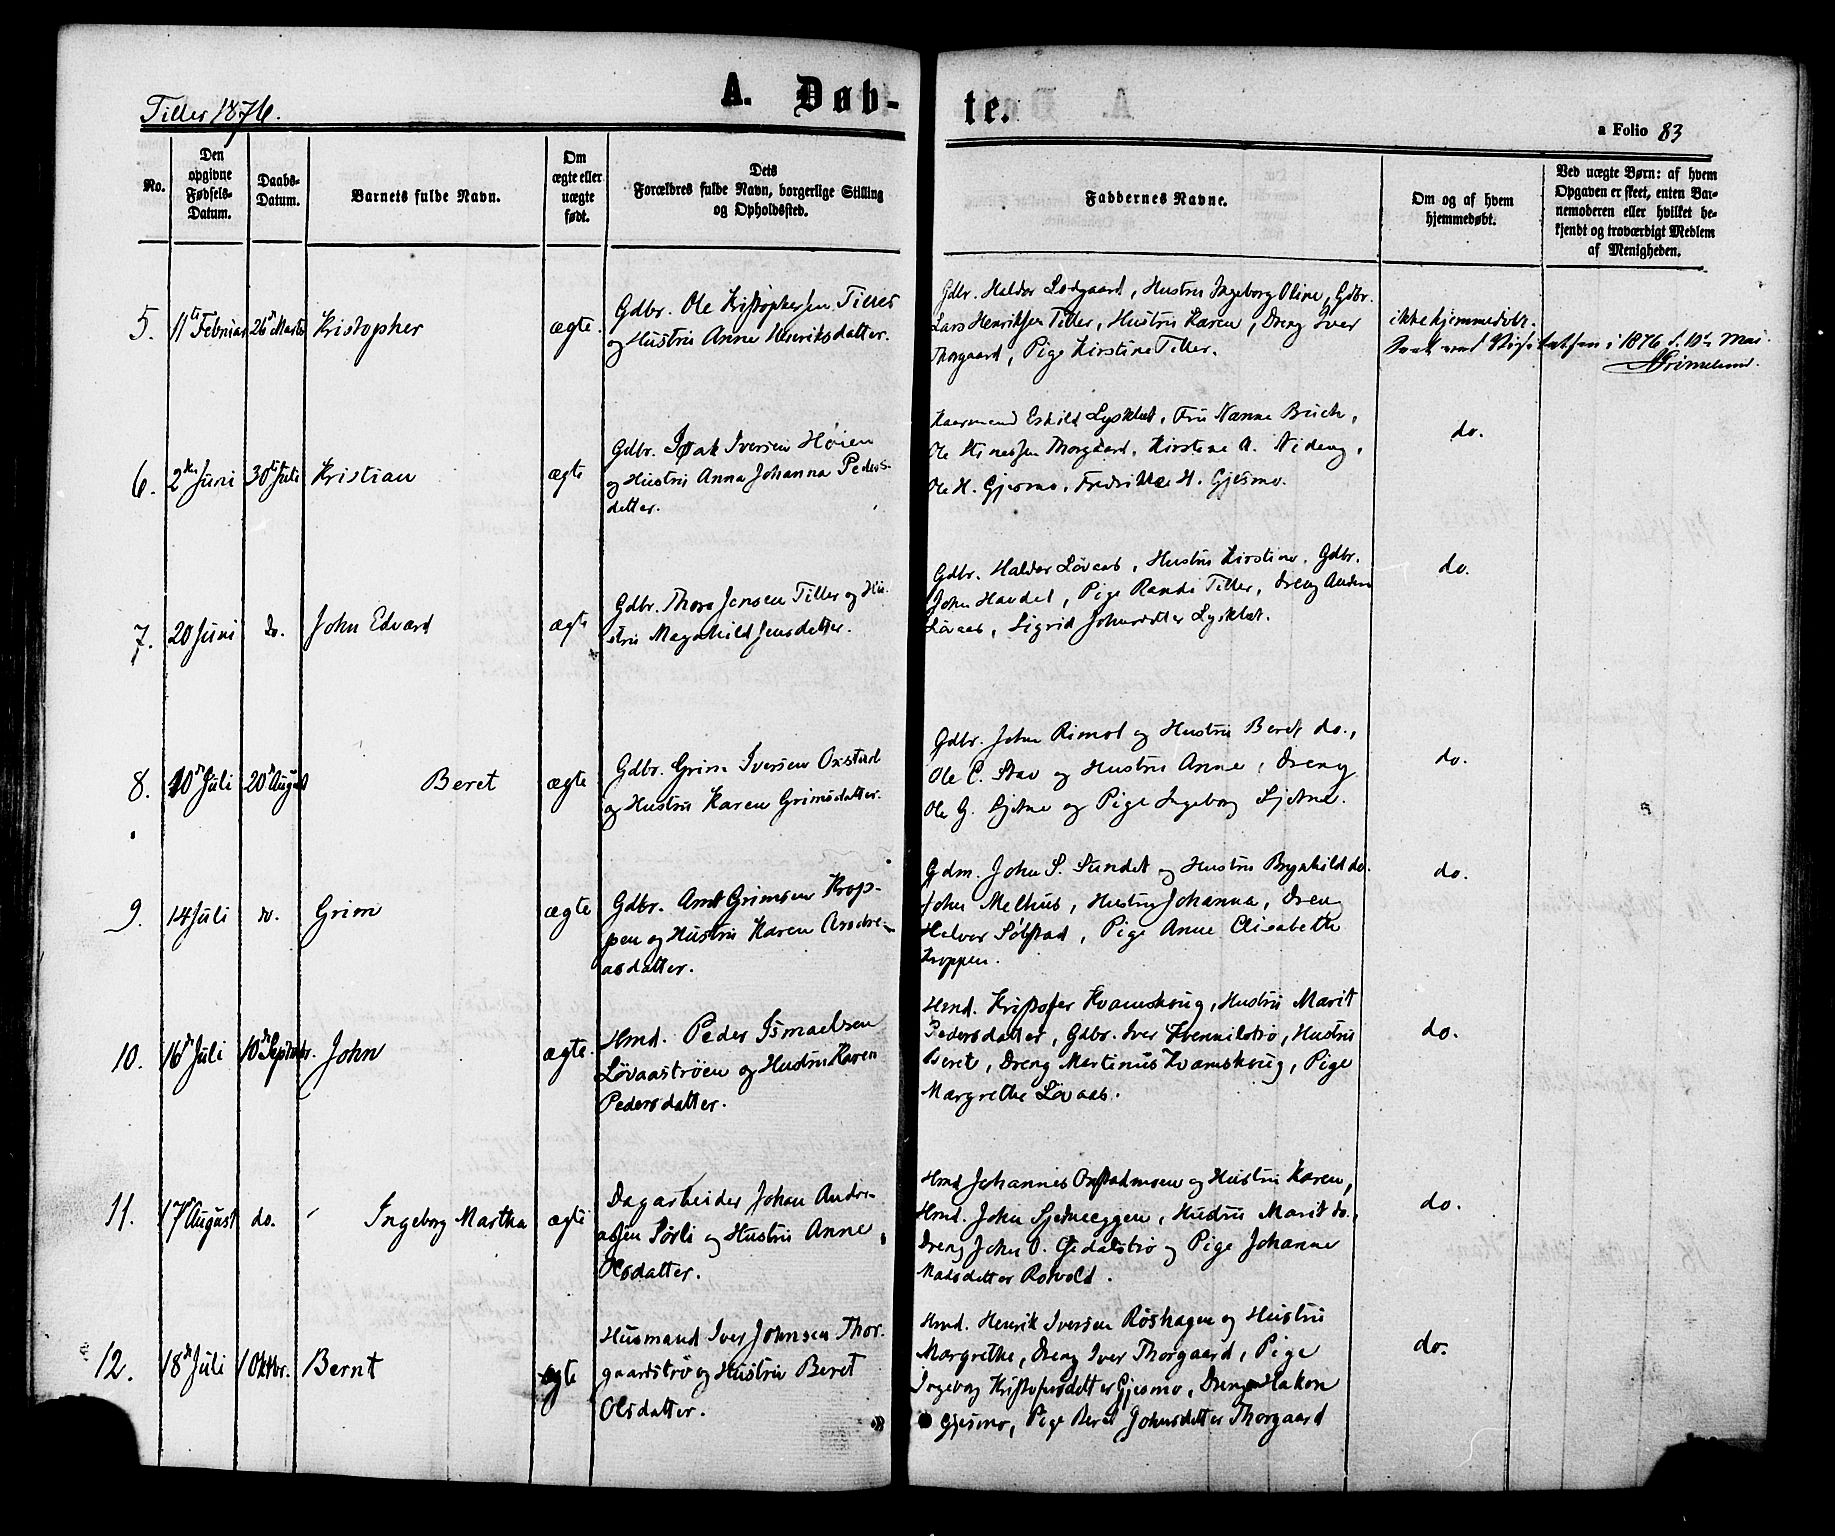 Tiller 1876.
A. Døb-
te.
a Folio 83
No.
Den
opgivne
Fødsels-
Datum.
Daabs-
Datum.
Barnets fulde Navn.
Om
ægte eller
uægte
født.
Dets
Forældres fulde Navn, borgerlige Stilling
og Opholdssted.
Faddernes Navne.
Om og af hvem
hjemmedøbt.
Ved uægte Børn: af hvem
Opgaven er skeet, enten Bar-
nemoderen eller hvilket be-
kjendt og troværdigt Medlem
af Menigheden.
5.
11te Februar
26de Marts
Kristopher
ægte.
Gdbr. Ole Kristophersen Tiller
og Hustru Anne Henriksdatter.
Gdbr. Haldor Lodgaard, Hustru Ingeborg Oline, Gdbr.
Lars Henriksen Tiller, Hustru Karen, Dreng Iver
Thorgaard, Pige Kirstine Tiller.
ikke hjemmedøbt.
i 1876 d. 10de Mai.
6.
2den Juni
30te Juli
Kristian
ægte
Gdbr. Isak Iversen Høien
og Hustru Anna Johanna Peders-
datter.
Eskild Lysklet, Fru Nanna Buch,
Ole Thorgaard, Kirstine A. Nideng,
Ole H. Gjesmo, Fredrikke H. Gjesmo.
do.
7.
20 Juni
do.
John Edvard
ægte
Gdbr. Thore Jensen Tiller og Hu-
stru Magnhild Jensdatter.
Gdbr. Haldor Løvaas, Hustru Kirstine, Gdbr.
John Havdal, Pige Randi Tiller, Dreng Anders
Løvaas, Sigrid Johnsdatter Lysklet.
do.
8.
10de Juli
20de August
Beret
ægte
Gdbr. Grim Iversen Oxstad
og Hustru Karen Grimsdatter.
Gdbr. John Rimol og Hustru Beret do.,
Ole C. Stav og Hustru Anne, Dreng
Ole G. Sjetne og Pige Ingeborg Sjetne.
do.
9.
14 Juli
do.
Grim
ægte
Gdbr. Arnt Grimsen Krop-
pen og Hustru Karen Andre-
asdatter.
Gdm. John S. Sundet og Hustru Brynhild do.
John Melhus, Hustru Johanna, Dreng
Halvor Sølstad, Pige Anne Elisabeth
Kroppen.
do.
10.
16de Juli
10de Septembr.
John
ægte.
Hmd. Peder Ismaelsen
Løvaastrøen og Hustru Karen
Pedersdatter.
Hmd. Kristofer Kvamskoug, Hustru Marit
Pedersdatter, Gdbr. Iver Hvennilstrø, Hustru
Beret, Dreng Martinus Kvamskoug, Pige
Margrethe Løvaas.
do.
11.
17de August
do.
Ingeborg Martha
ægte
Dagarbeider Johan Andre-
assen Sørli og Hustru Anne
Olsdatter.
Hmd Johannes Oxstadmoen og Hustru Karen,
Hmd. John Sjetneeggen, Hustru Marit do.,
Dreng John O. Gedalstrø og Pige Johanne
Madsdatter Rotvold.
do.
12.
18de Juli
1 Oktbr.
Bernt
ægte
Husmand Iver Johnsen Thor-
gaardstrø og Hustru Beret
Olsdatter.
Hmd. Henrik Iversen Røshagen og Hustru
Margrethe, Dreng Iver Thorgaard, Pige
Ingeborg Kristofersdatter Gjesmo, Dreng Hakon
Gjesmo, Pige Beret Johnsdatter Thorgaard
do.